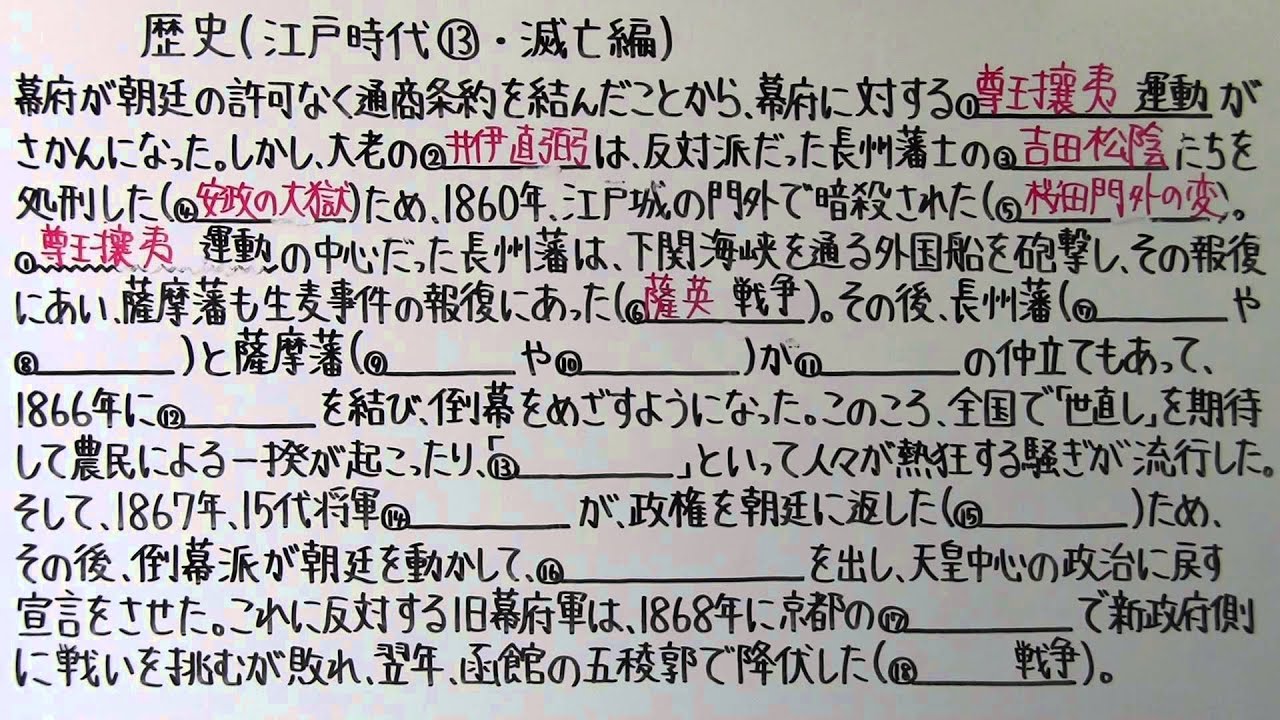 歴史(江戸時代⑬・滅亡編)
幕府が朝廷の許可なく通商条約を結んだことから、幕府に対する①尊王攘夷 運動が
さかんになった。しかし、大老の②井伊直弼は、反対派だった長州藩士の③吉田松陰たちを
処刑した(④安政の大獄)ため、1860年、江戸城の門外で暗殺された(⑤桜田門外の変)。
①尊王攘夷 運動の中心だった長州藩は、下関海峡を通る外国船を砲撃し、その報復
にあい、薩摩藩も生麦事件の報復にあった(⑥薩英 戦争)。その後、長州藩(⑦______や
⑧______)と薩摩藩(⑨______や⑩______)が⑪______の仲立てもあって、
1866年に⑫______を結び、倒幕をめざすようになった。このころ、全国で「世直し」を期待
して農民による一揆が起こったり、「⑬______」といって人々が熱狂する騒ぎが流行した。
そして、1867年、15代将軍⑭______が、政権を朝廷に返した(⑮______)ため、
その後、倒幕派が朝廷を動かして、⑯______を出し、天皇中心の政治に戻す
宣言をさせた。これに反対する旧幕府軍は、1868年に京都の⑰______で新政府側
に戦いを挑むが敗れ、翌年、函館の五稜郭で降伏した(⑱______戦争)。